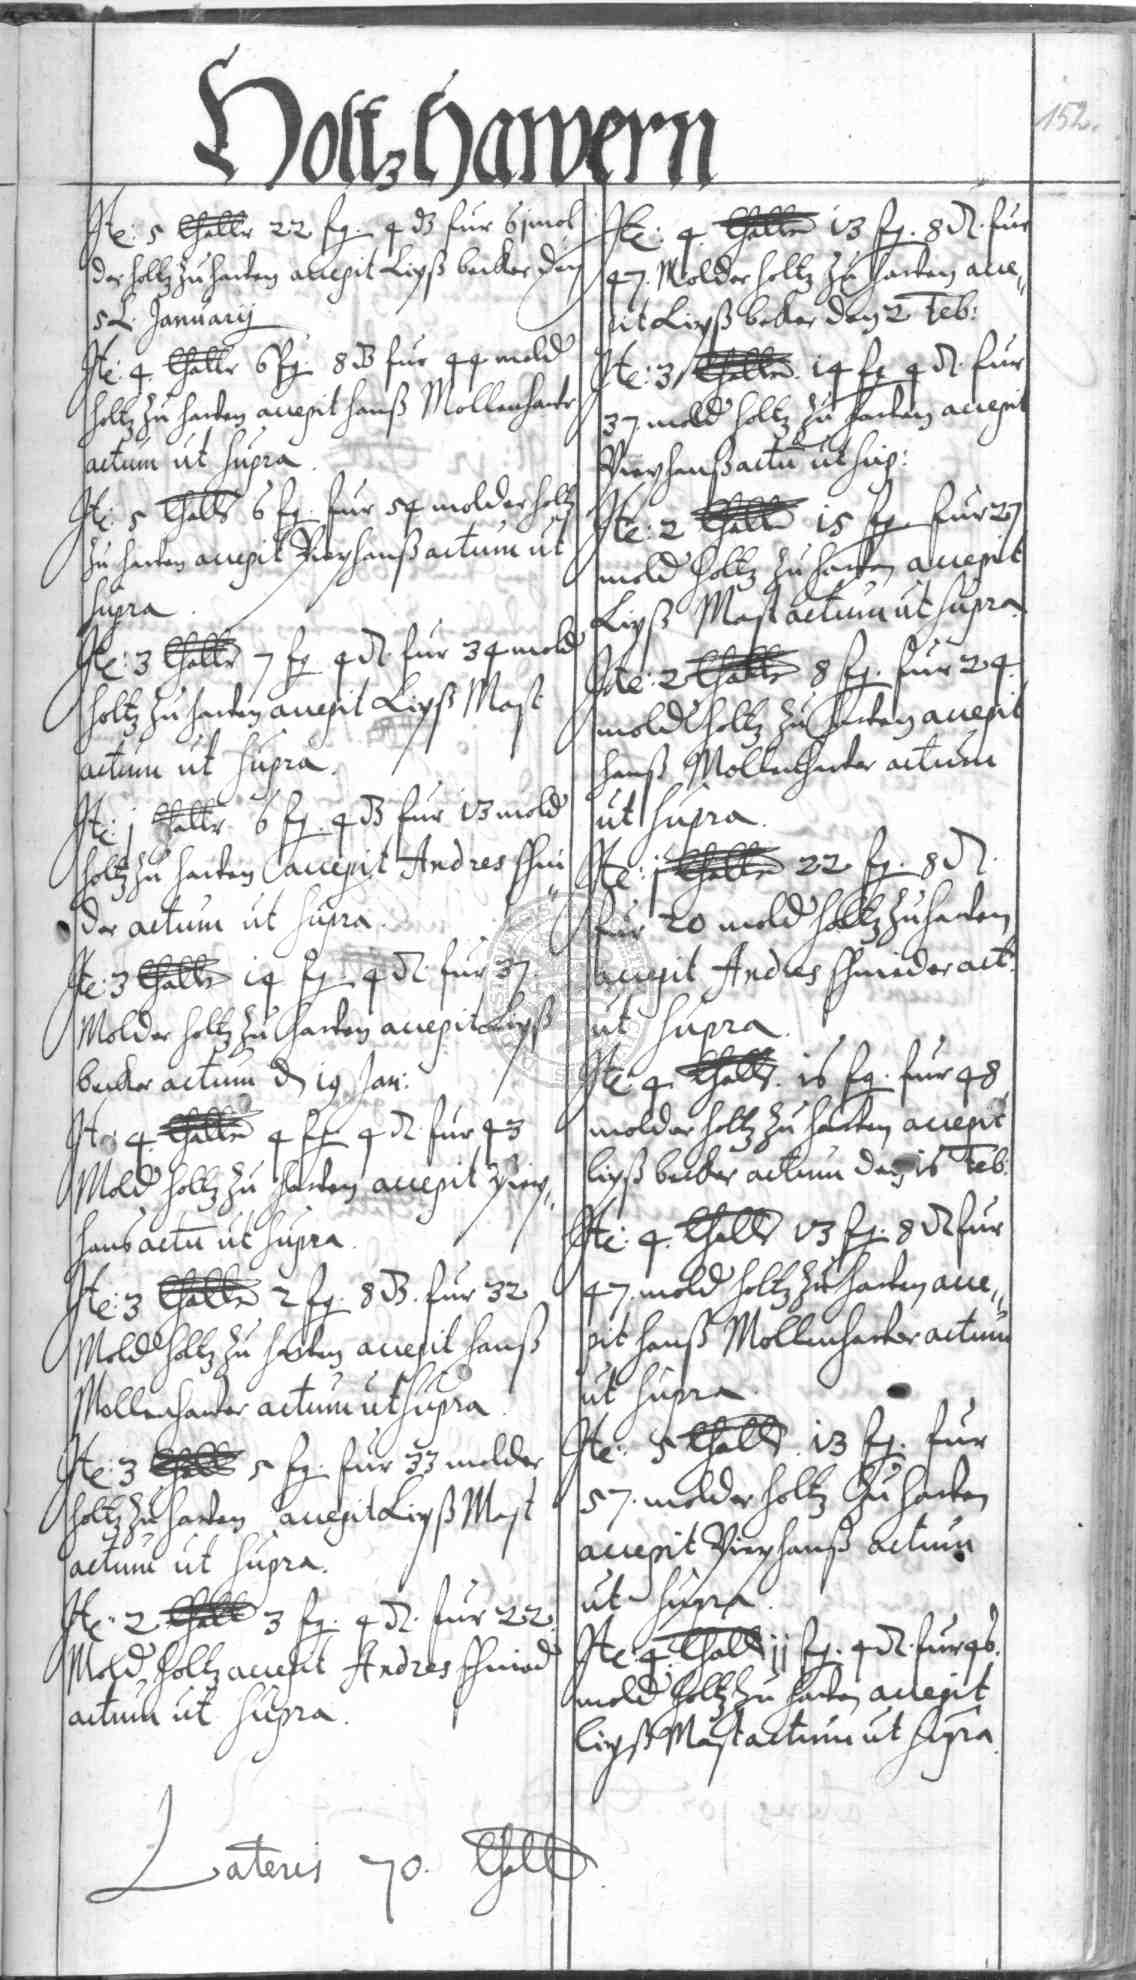 Holtz hawern
152.
Ite: 5 thaller 22 fg. 4 d3 fur 61 mol
der holtz zu hawen accepit Lixß becker den
5t. Januarij
Ite: 4. thaller 6 fg. 8 d3 fur 44 mold
holtz zu hawen accepit hanß Mollenhawer
actum ut supra.
Ite: 5 thaller 6 fg. fur 54 molder holtz
zu hawen accepit Vieyhanß actum ut
supra.
Ite: 3 thaller 7 fg. 4 d. fur 34 mold
holtz zu hawen accepit Lixß Mast
actum ut supra.
Ite: j thaller 6 fg. 4 d3 fur 13 mold
holtz zu hawen accepit Andres schmi
der actum ut supra.
Ite: 3 thaller 14 fg. 4 d. fur 37.
Molder holtz zu hawen accepit Lixß
becker actum d 19 Jan:
Ite: 4. thaller 4 fg 4 d. fur 43
Mold holtz zu hawen accepit Viey„
hans actu ut supra.
Ite: 3 thaller 2 fg. 8 d3. fur 32
Mold holtz zu hawen accepit hanß
Mollenhawer actum ut supra.
Ite: 3 thaller 5 fg. fur 33 molder
holtz zu hawen accepit Lixß Mast
actum ut supra.
Ite: 2 thaller 3 fg. 4 d. fur 22.
Mold holtz accepit Andres schmid
actum ut supra.
Lateris 70. thall
Ite: 4. thaller 13 fg. 8 d. fur
47. Molder holtz zu hawen acce„
pit Lixß becker den 2 Feb:
Ite: 3 thaller. 14 fg 4 d. fur
37. mold holtz zu hawen accepit
Vieyhanß actu ut sup:
Ite: 2 thaller 15 fg. fur 27
mold holtz zu hawen accepit
Lixß Mast actum ut supra.
Ite: 2 thaller 8 fg. fur 24.
mold holtz zu hawen accepit
hanß Mollenhawer actum
ut supra.
Ite: j thaller 22 fg. 8 d.
fur 20 mold holtz zu hawen
accepit Andres schmieder act:
ut supra.
Ite: 4. thaller. 16 fg. fur 48
molder holtz zu hawen accepit
lixß becker actum den 16 Feb:
Ite: 4. thaller 13 fg. 8 d fur
47. mold holtz zu hawen acce„
pit hanß Mollenhawer actum
ut supra.
Ite: 5 thaller. 13 fg. fur
57. molder holtz zu hawen
accepit Vieyhanß actum
ut supra.
Ite: 4. thaller jj fg. 4 d. fur 46.
mold holtz zu hawen accepit
lixß Mast actum ut supra.